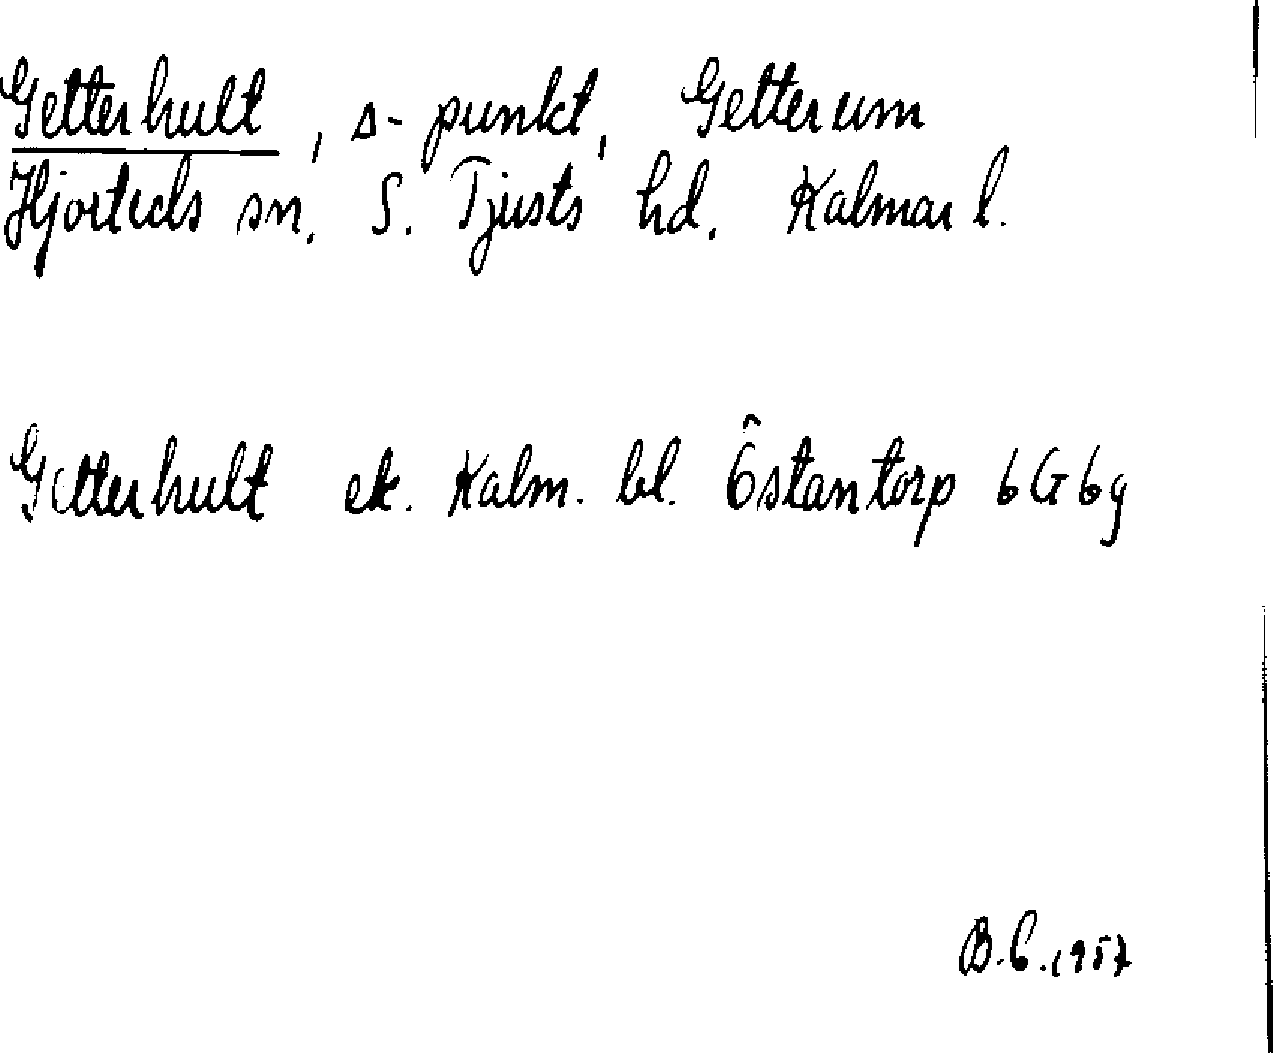 Getterhult, s-punkt, Getterum
Hjorteds sn. S. Tjusts hd. Kalmar l.
Getterhult ek. Kalm. bl. Östantorp 6G6g
B.C. 1957